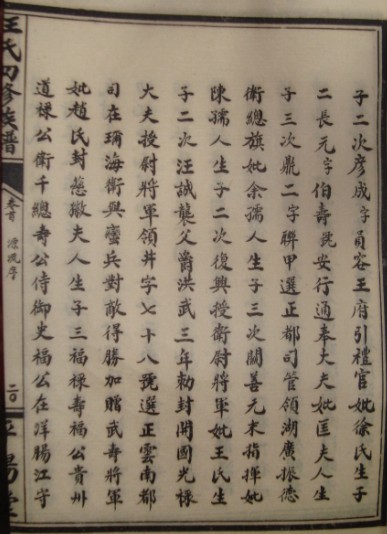 子二次彦成字員容王府引禮官妣徐氏生子
二長元字伯壽昆安行通奉大夫妣匡夫人生
子三次鼎二字聯甲選正都司管領湖廣振德
衛總旗妣余孺人生子三次關善元末指揮妣
陳孺人生子二次復興授衛尉將軍妣王氏生
子二次汪誠襲父爵洪武三年勅封開國光祿
大夫授尉將軍領井字七十八號選正雲南都
司在瑂海衛興蠻兵對敵得勝加贈武壽將軍
妣趙氏封慈徽夫人生子三福祿壽福公貴州
道祿公衛千總壽公侍御史福公在洋腸江守
汪氏初修族譜
卷首
二〇
平陽堂